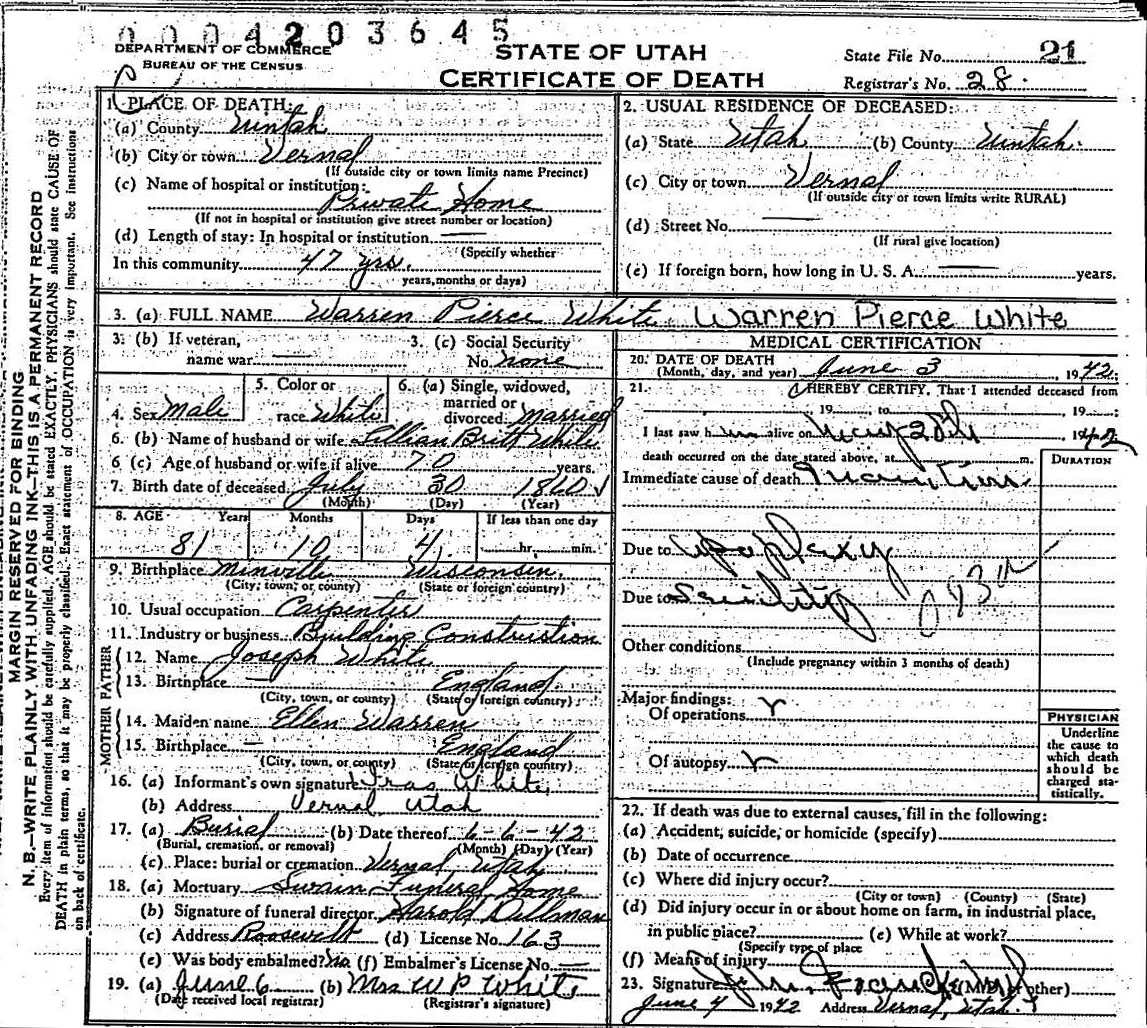 0004203645
DEPARTMENT OF COMMERCE
BUREAU OF THE CENSUS
STATE OF UTAH
CERTIFICATE OF DEATH
State File No. 21
Registrar's No. 28.
N. B.—WRITE PLAINLY WITH UNFADING INK—THIS IS A PERMANENT RECORD
MARGIN RESERVED FOR BINDING
Every item of information should be carefully supplied. AGE should be stated EXACTLY. PHYSICIANS should state CAUSE OF
DEATH in plain terms, so that it may be properly classified. Exact statement of OCCUPATION is very important. See instructions
on back of certificate.
1. PLACE OF DEATH:
(a) County Uintah
(b) City or town Vernal
(If outside city or town limits name Precinct)
(c) Name of hospital or institution:
Private Home
(If not in hospital or institution give street number or location)
(d) Length of stay: In hospital or institution —
(Specify whether
In this community 47 yrs.
years, months or days)
2. USUAL RESIDENCE OF DECEASED:
(a) State Utah (b) County Uintah.
(c) City or town Vernal
(If outside city or town limits write RURAL)
(d) Street No. —
(If rural give location)
(e) If foreign born, how long in U. S. A. — years.
3. (a) FULL NAME Warren Pierce White Warren Pierce White
3. (b) If veteran,
name war —
3. (c) Social Security
No. none
4. Sex Male
5. Color or
race White
6. (a) Single, widowed,
married or
divorced. married
6. (b) Name of husband or wife Lillian Britt White
6 (c) Age of husband or wife if alive 70 years.
7. Birth date of deceased July 30 1860
(Month) (Day) (Year)
8. AGE Years Months Days If less than one day
81 10 4 hr. min.
9. Birthplace Minville Wisconsin.
(City, town, or county) (State or foreign country)
10. Usual occupation Carpenter
11. Industry or business Building Construction
FATHER
12. Name Joseph White
13. Birthplace — England.
(City, town, or county) (State or foreign country)
MOTHER
14. Maiden name Ellen Warren
15. Birthplace — England
(City, town, or county) (State or foreign country)
16. (a) Informant's own signature White
(b) Address Vernal Utah
17. (a) Burial (b) Date thereof 6-6-42
(Burial, cremation, or removal) (Month) (Day) (Year)
(c) Place: burial or cremation Vernal, Utah
18. (a) Mortuary Swain Funeral Home
(b) Signature of funeral director. Harold Dillman
(c) Address Roosevelt (d) License No. 163
(e) Was body embalmed? No (f) Embalmer's License No. —
19. (a) June 6 (b) Mrs W P White
(Date received local registrar) (Registrar's signature)
MEDICAL CERTIFICATION
20. DATE OF DEATH
(Month, day, and year) June 3, 1942.
21. I HEREBY CERTIFY, That I attended deceased from
19 to 19
I last saw him alive on May 20th 1942
death occurred on the date stated above, at m.
DURATION
Immediate cause of death
Due to apoplexy
Due to Senility
Other conditions
(Include pregnancy within 3 months of death)
Major findings:
Of operations
Of autopsy
PHYSICIAN
Underline
the cause to
which death
should be
charged sta-
tistically.
22. If death was due to external causes, fill in the following:
(a) Accident, suicide, or homicide (specify)
(b) Date of occurrence
(c) Where did injury occur?
(City or town) (County) (State)
(d) Did injury occur in or about home on farm, in industrial place,
in public place? (e) While at work?
(Specify type of place
(f) Means of injury
23. Signature (M.D. or other)
June 4 1942 Address Vernal, Utah.